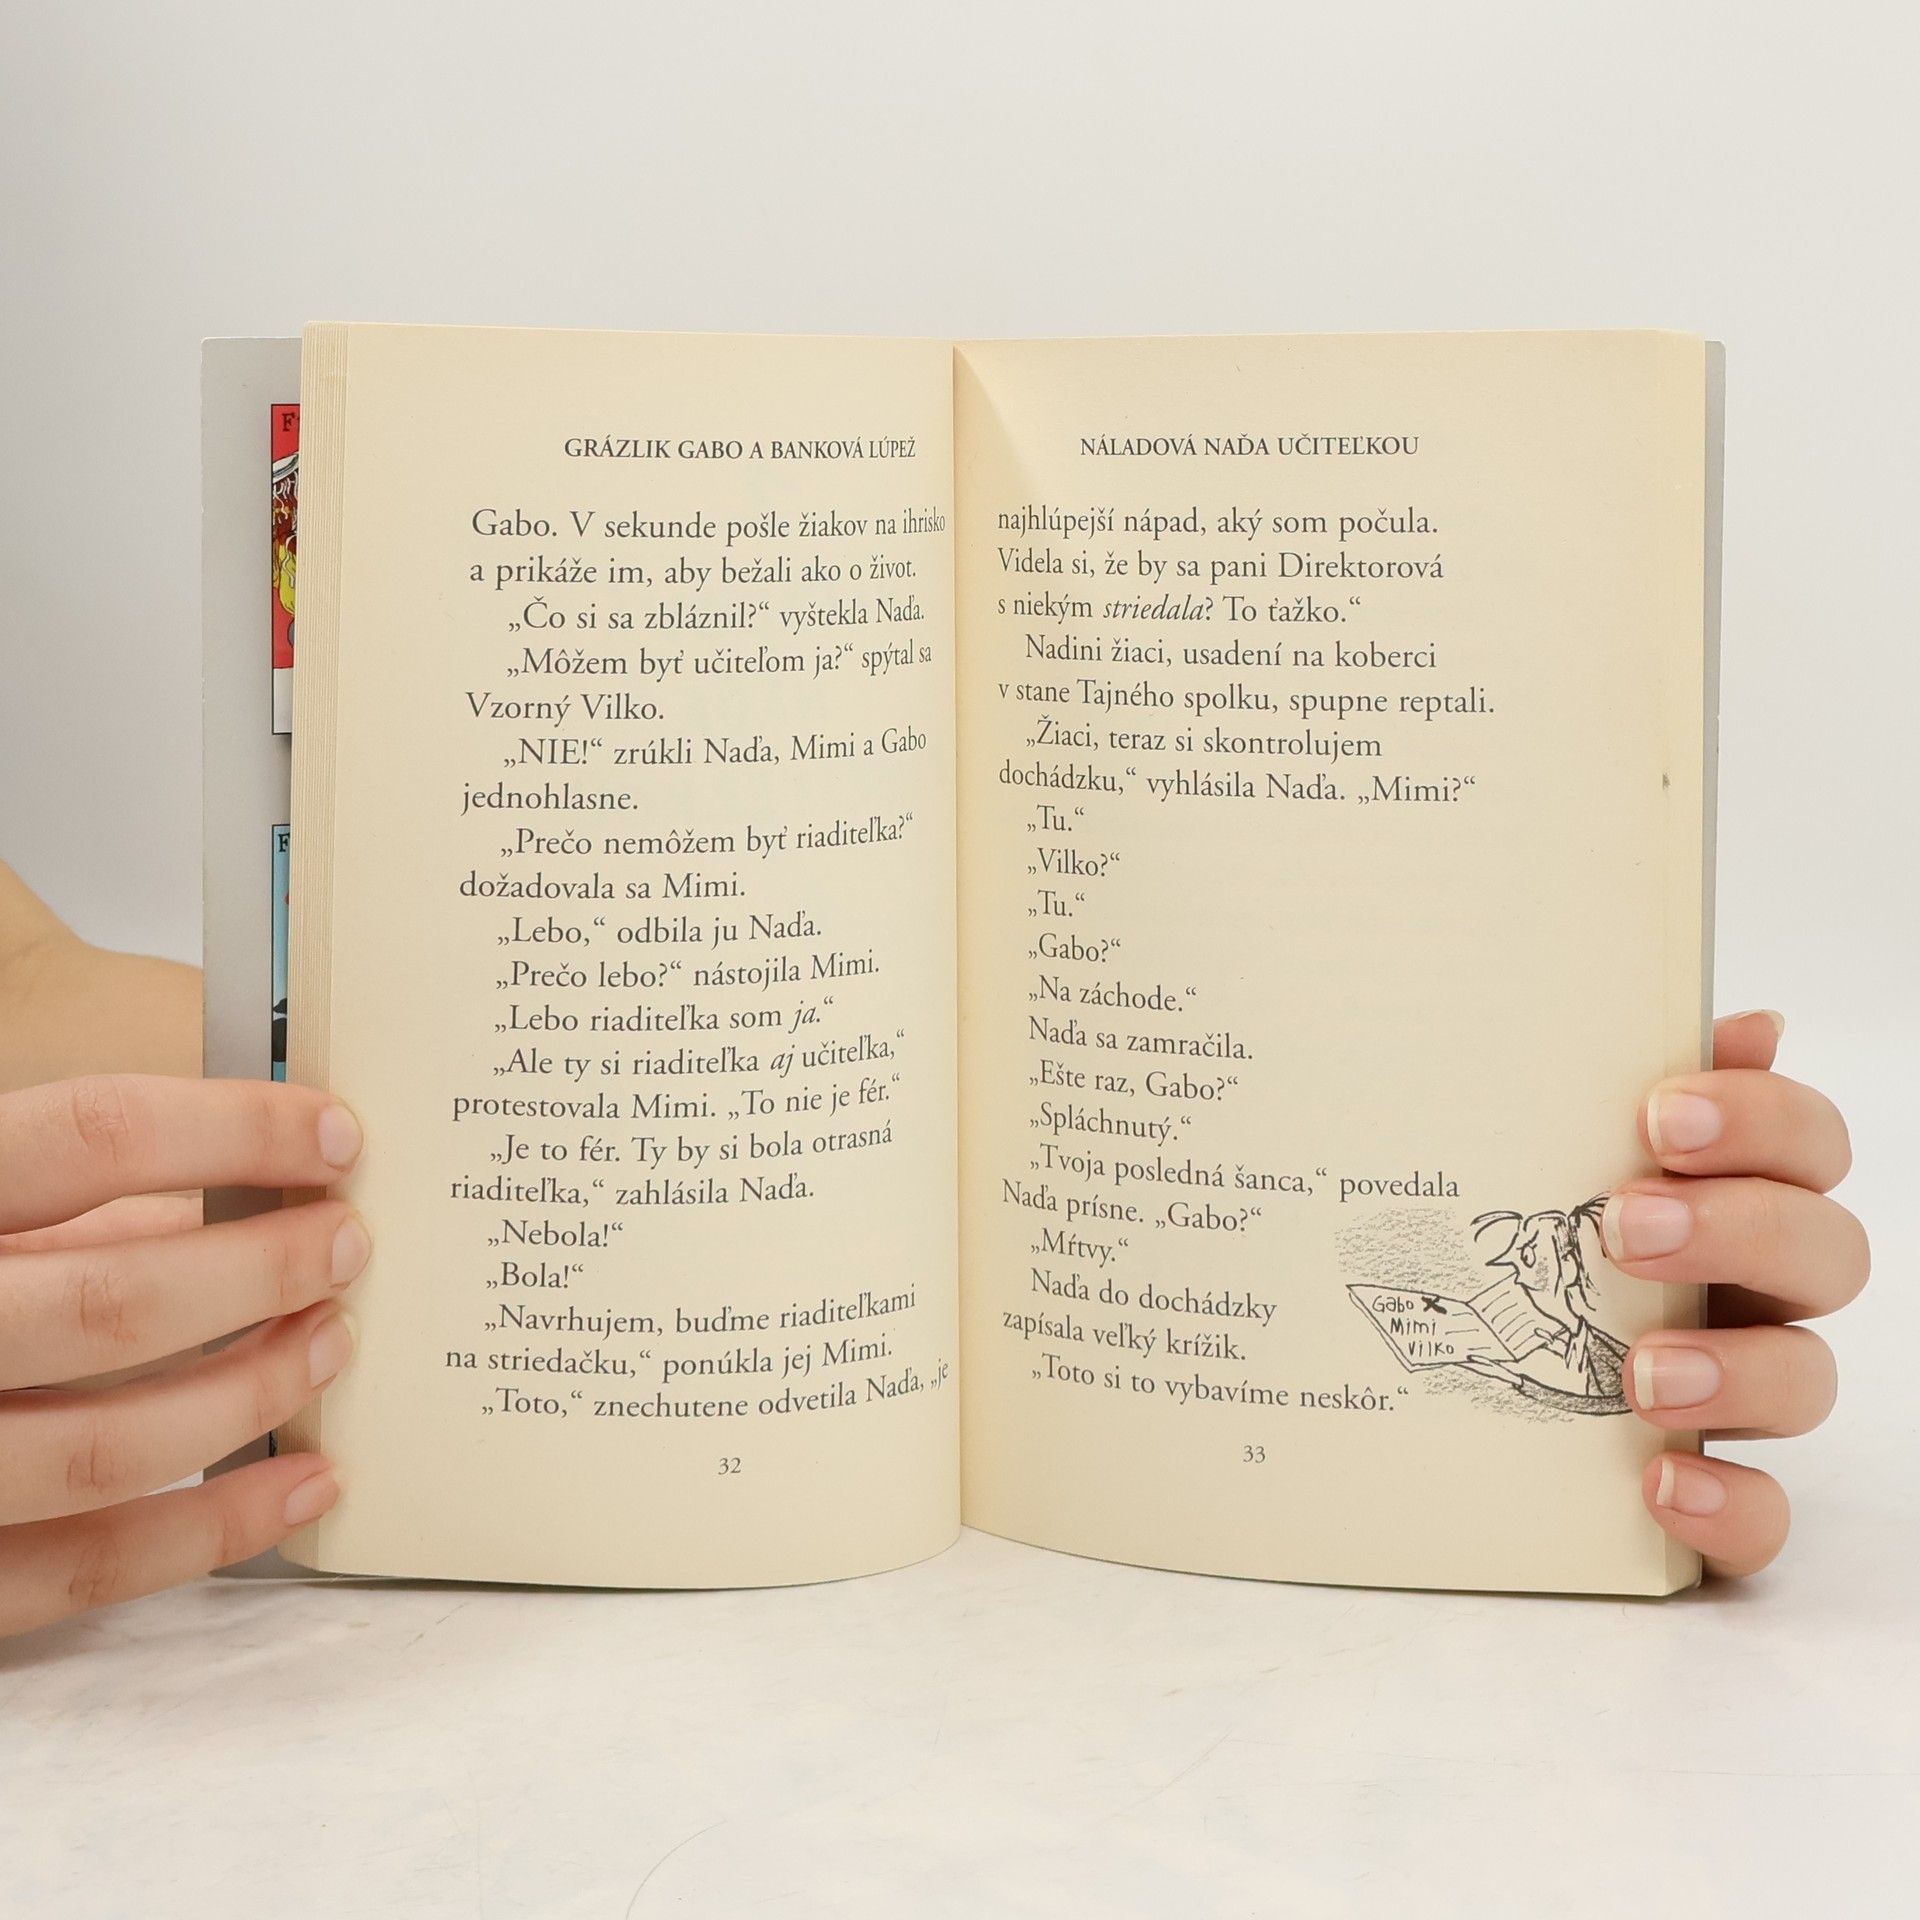 GRÁZLIK GABO A BANKOVÁ LÚPEŽ
Gabo. V sekunde pošle žiakov na ihrisko
a prikáže im, aby bežali ako o život.
„Čo si sa zbláznil?“ vyštekla Naďa.
„Môžem byť učiteľom ja?“ spýtal sa
Vzorný Vilko.
„NIE!“ zrúkli Naďa, Mimi a Gabo
jednohlasne.
„Prečo nemôžem byť riaditeľka?“
dožadovala sa Mimi.
„Lebo,“ odbila ju Naďa.
„Prečo lebo?“ nástojila Mimi.
„Lebo riaditeľka som ja.“
„Ale ty si riaditeľka aj učiteľka,“
protestovala Mimi. „To nie je fér.“
„Je to fér. Ty by si bola otrasná
riaditeľka,“ zahlásila Naďa.
„Nebola!“
„Bola!“
„Navrhujem, buďme riaditeľkami
na striedačku,“ ponúkla jej Mimi.
„Toto,“ znechutene odvetila Naďa, „je
32
NÁLADOVÁ NAĎA UČITEĽKOU
najhlúpejší nápad, aký som počula.
Videla si, že by sa pani Direktorová
s niekým striedala? To ťažko.“
Nadini žiaci, usadení na koberci
v stane Tajného spolku, spupne reptali.
„Žiaci, teraz si skontrolujem
dochádzku,“ vyhlásila Naďa. „Mimi?“
„Tu.“
„Vilko?“
„Tu.“
„Gabo?“
„Na záchode.“
Naďa sa zamračila.
„Ešte raz, Gabo?“
„Spláchnutý.“
„Tvoja posledná šanca,“ povedala
Naďa prísne. „Gabo?“
„Mŕtvy.“
Naďa do dochádzky
zapísala veľký krížik.
„Toto si to vybavíme neskôr.“
Gabo X
Mimi
Vilko
33